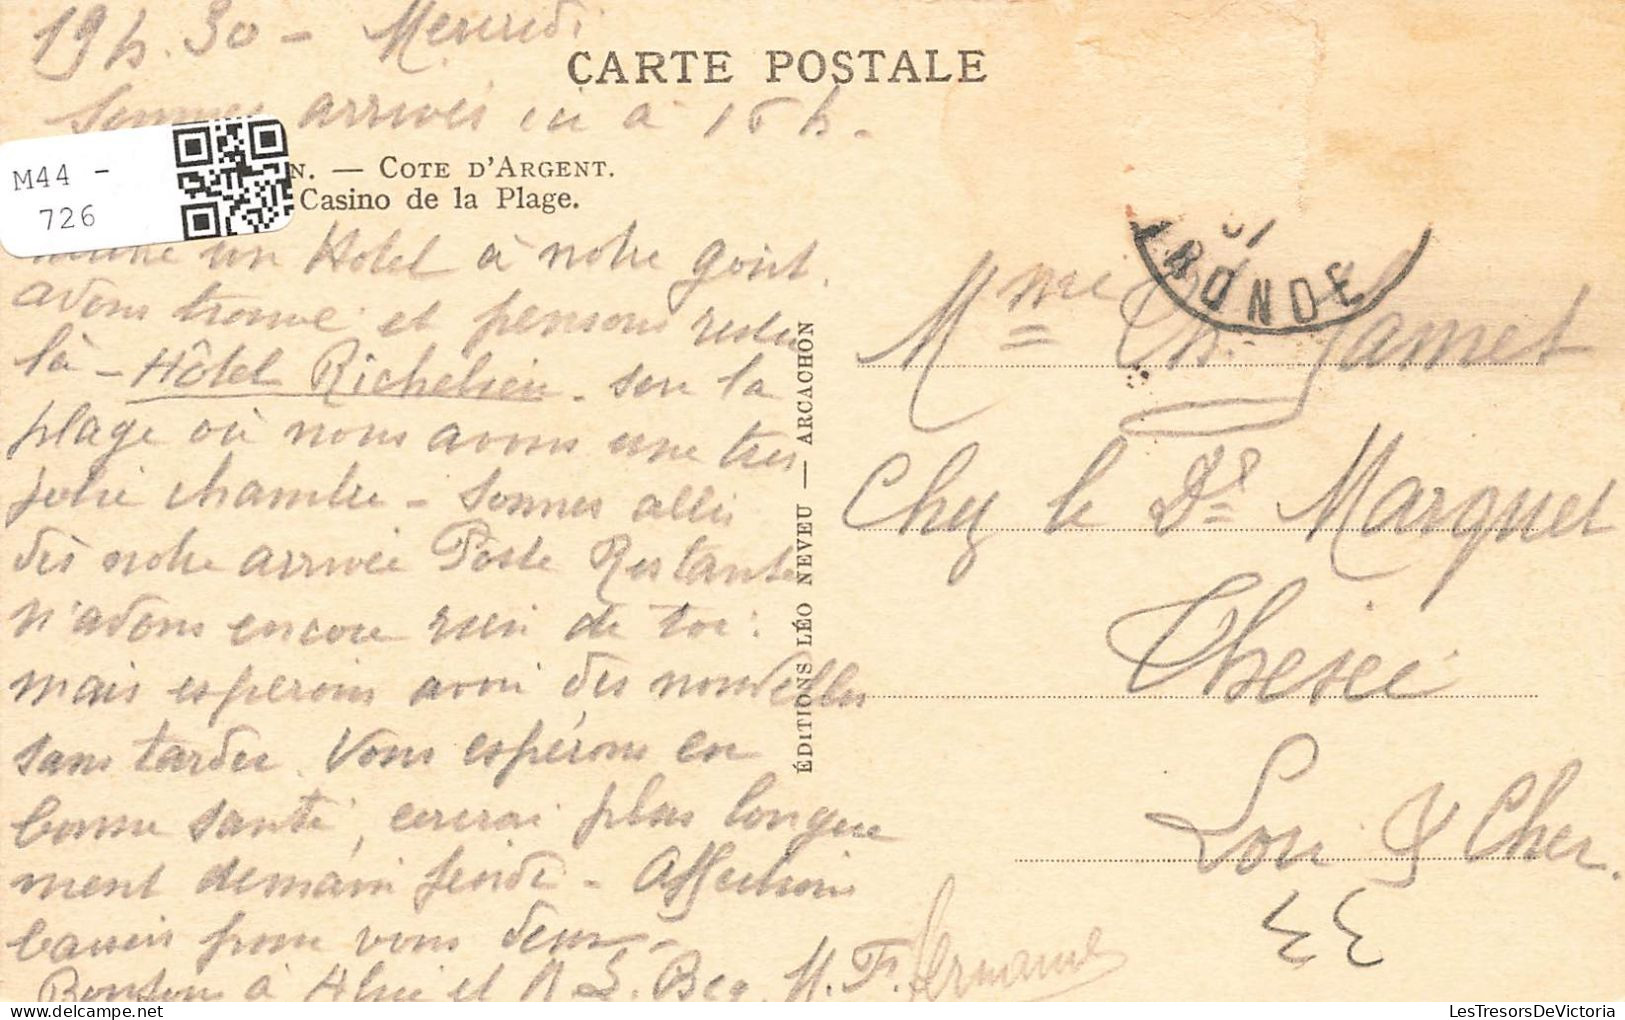 19 h. 30 - Mercredi
CARTE POSTALE
Sommes arrivés ici à 15 h.
M44 -
726
N. — COTE D'ARGENT.
Casino de la Plage.
un Hotel à notre goût.
avons trouvé et pensons rester
là - Hôtel Richelieu - sur la
plage où nous avons une très
jolie chambre - Sommes allés
dès notre arrivée Poste Restante
n'avons encore rien de toi :
mais espérons avoir des nouvelles
sans tarder. Vous espérons en
bonne santé, écrirai plus longue
ment demain jeudi - Affectueux
baisers pour vous deux -
Bonsoir à Alice et
Fernand
ÉDITIONS LÉO NEVEU — ARCACHON
RONDE
Mme Ch. Jamet
Chez le Dr Marquet
Thésée
Loir & Cher.
33
LesTresorsDeVictoria.com